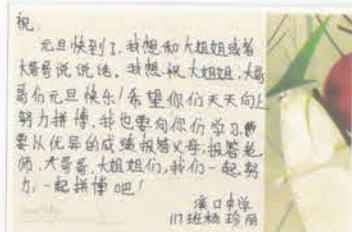 祝
元旦快到了，我想和大姐姐或者
大哥哥说说话。我想祝大姐姐，大哥
哥们元旦快乐！希望你们天天向上
努力拼博，我也要向你们学习，
要以优异的成绩报答父母，报答老
师，大哥哥、大姐姐们，我们一起努
力，一起拼博吧！
溪口中学
117班杨珍丽